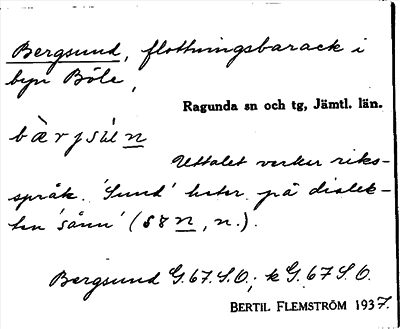 Bergsund, flottningsbarack i
byn Böle,
Ragunda sn och tg, Jämtl. län.
bàrjsùn
Uttalet verkar riks-
språk. 'Sund' heter på dialek-
ten 'sånn' (s8n, n.).
Bergsund G.67.S.O.; k G.67 S.O.
BERTIL FLEMSTRÖM 1937.